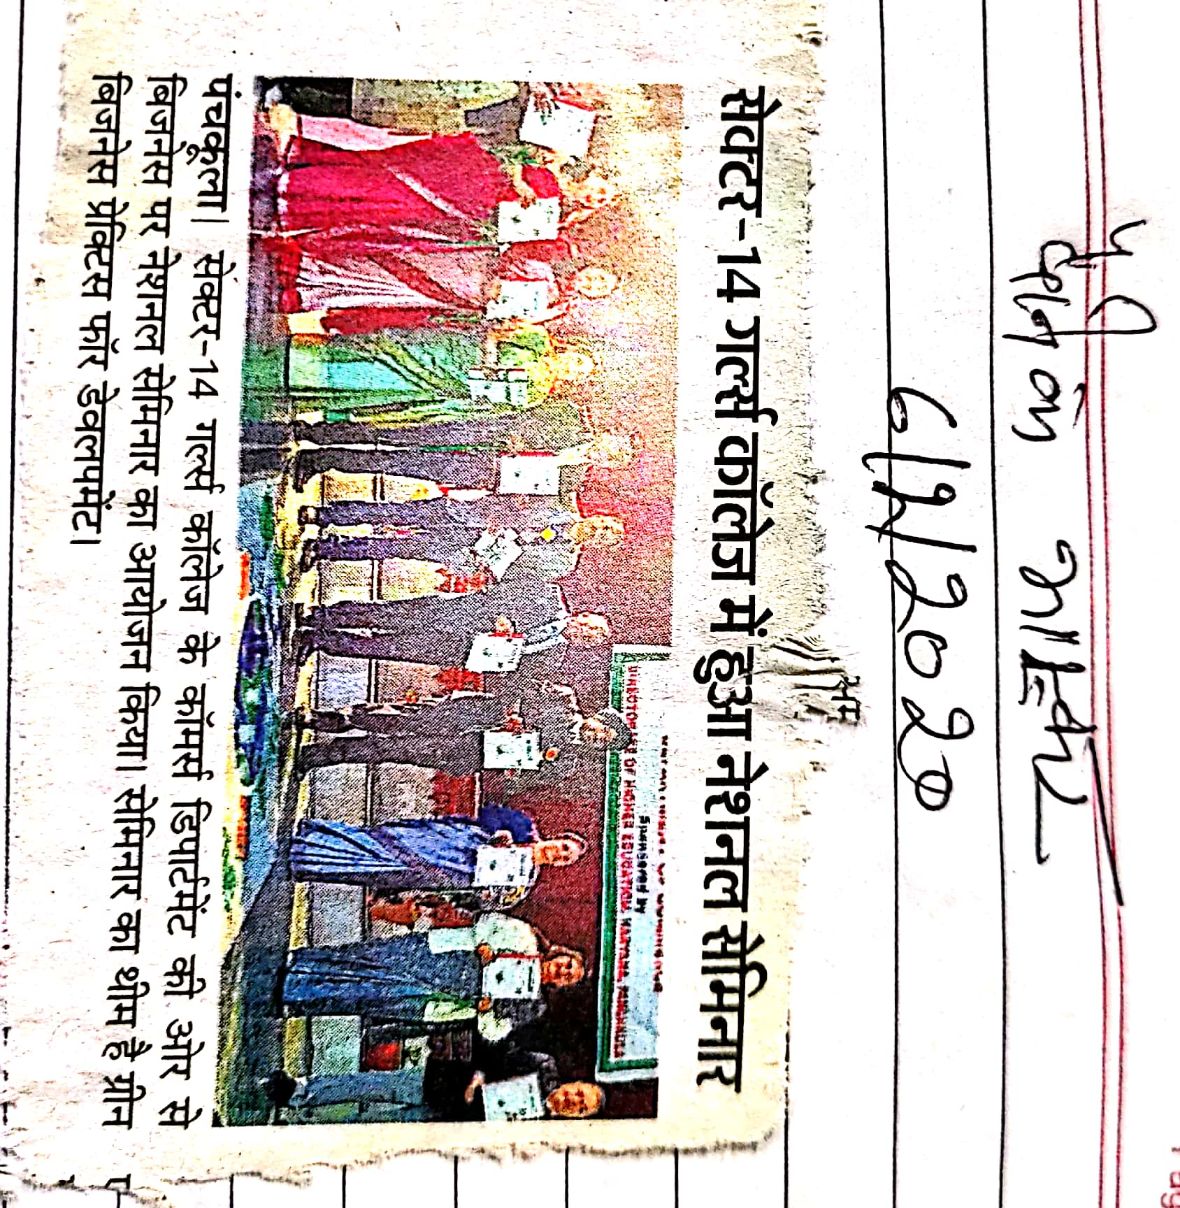 6/2/2020
सेक्टर-14 गर्ल्स कॉलेज में हुआ नेशनल सेमिनार
Sponsored by
DIRECTOR OF HIGHER EDUCATION, HARYANA, PANCHKULA
पंचकूला। सेक्टर-14 गर्ल्स कॉलेज के कॉमर्स डिपार्टमेंट की ओर से
बिजनेस पर नेशनल सेमिनार का आयोजन किया। सेमिनार का थीम है ग्रीन
बिजनेस प्रेक्टिस फॉर डेवलपमेंट।